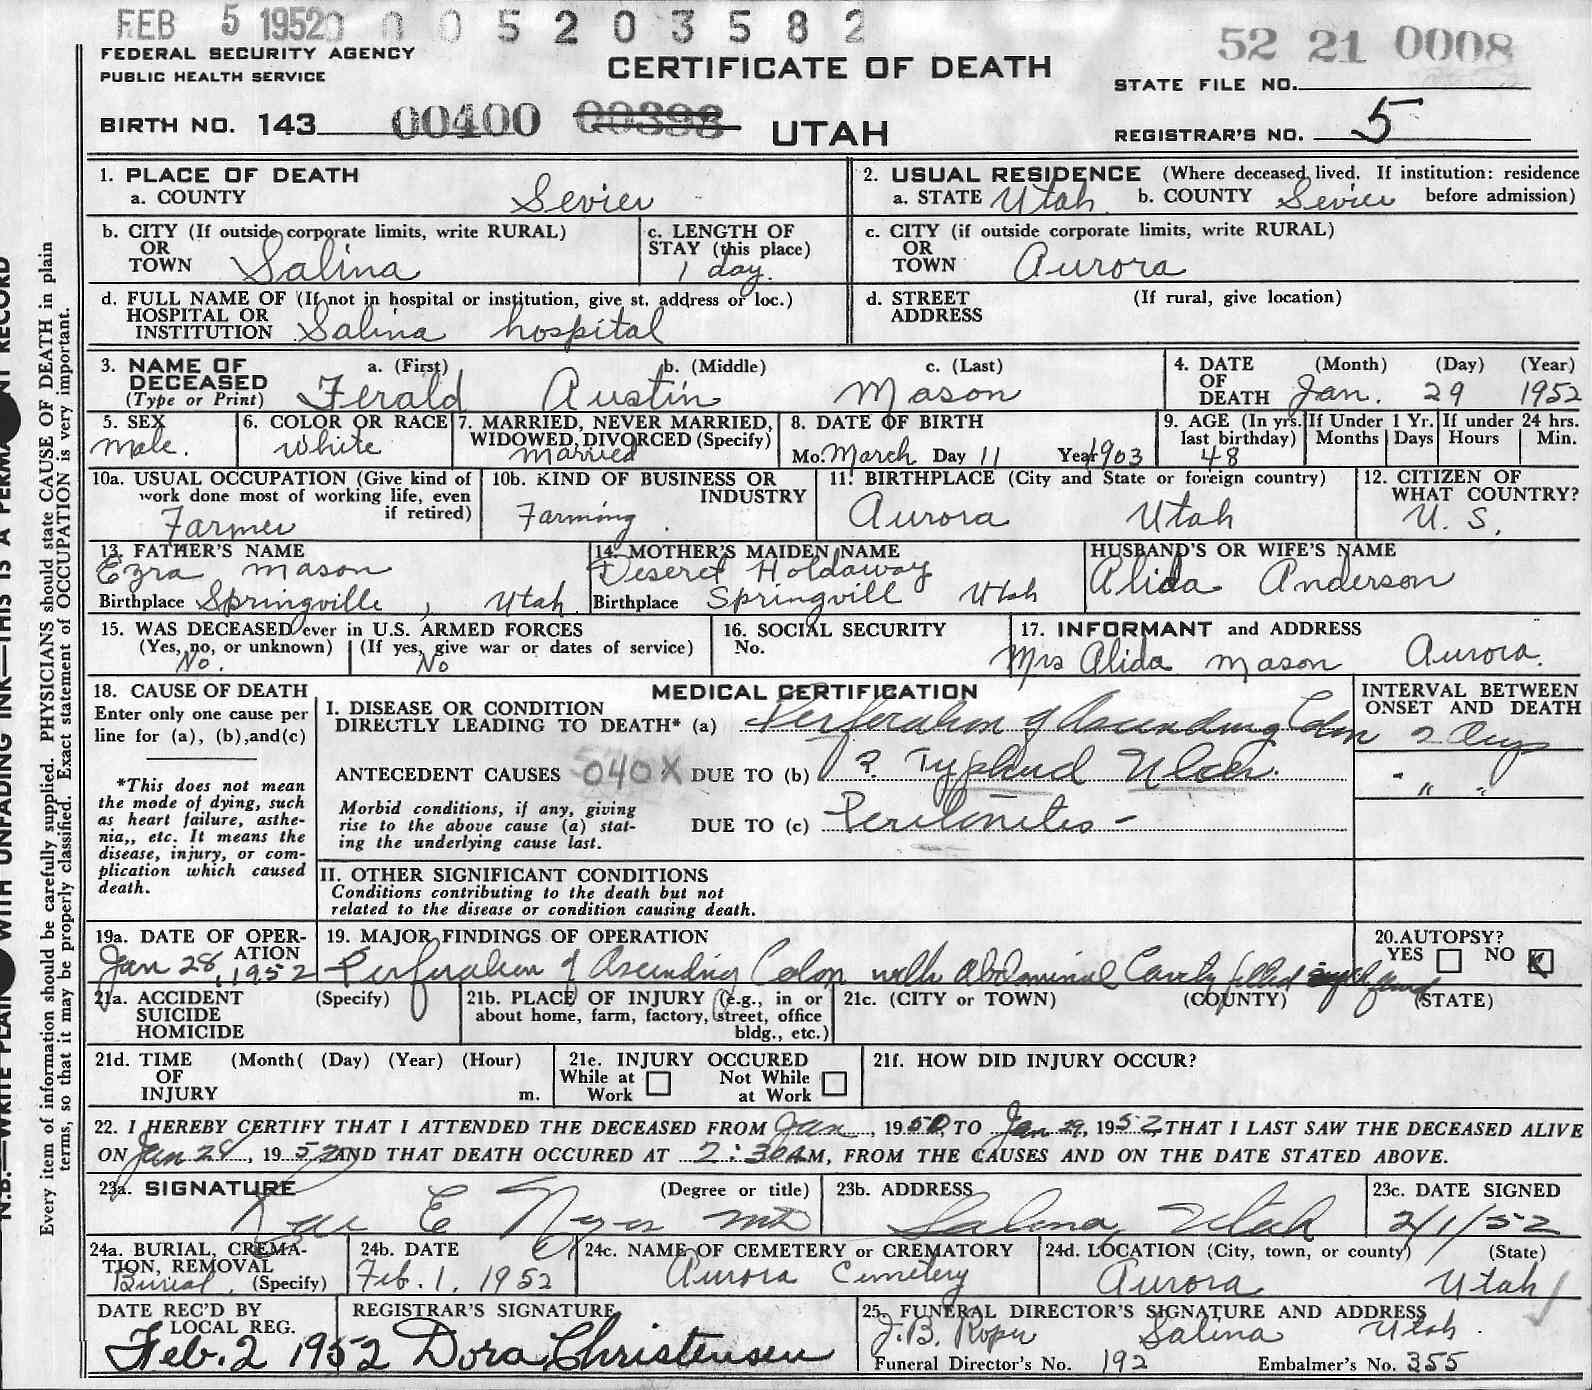 FEB 5 1952 0 0 5 2 0 3 5 8 2
52 21 0008
FEDERAL SECURITY AGENCY
PUBLIC HEALTH SERVICE
CERTIFICATE OF DEATH
STATE FILE NO.
BIRTH NO. 143 00400 00398 UTAH
REGISTRAR'S NO. 5
1. PLACE OF DEATH
a. COUNTY Sevier
2. USUAL RESIDENCE (Where deceased lived. If institution: residence
a. STATE Utah b. COUNTY Sevier before admission)
b. CITY (If outside corporate limits, write RURAL)
OR
TOWN Salina
c. LENGTH OF
STAY (this place)
1 day.
c. CITY (if outside corporate limits, write RURAL)
OR
TOWN Aurora
d. FULL NAME OF (If not in hospital or institution, give st. address or loc.)
HOSPITAL OR
INSTITUTION Salina hospital
d. STREET (If rural, give location)
ADDRESS
3. NAME OF a. (First) b. (Middle) c. (Last)
DECEASED
(Type or Print) Ferald Austin Mason
4. DATE (Month) (Day) (Year)
OF
DEATH Jan. 29 1952
5. SEX
male.
6. COLOR OR RACE
white
7. MARRIED, NEVER MARRIED,
WIDOWED, DIVORCED (Specify)
married
8. DATE OF BIRTH
Mo. March Day 11 Year 1903
9. AGE (In yrs.
last birthday)
48
If Under 1 Yr.
Months Days
If under 24 hrs.
Hours Min.
10a. USUAL OCCUPATION (Give kind of
work done most of working life, even
if retired)
Farmer
10b. KIND OF BUSINESS OR
INDUSTRY
Farming
11. BIRTHPLACE (City and State or foreign country)
Aurora Utah
12. CITIZEN OF
WHAT COUNTRY?
U. S.
13. FATHER'S NAME
Ezra Mason
Birthplace Springville, Utah
14. MOTHER'S MAIDEN NAME
Deseret Holdaway
Birthplace Springvill Utah
HUSBAND'S OR WIFE'S NAME
Alida Anderson
15. WAS DECEASED ever in U.S. ARMED FORCES
(Yes, no, or unknown) (If yes, give war or dates of service)
No. No
16. SOCIAL SECURITY
No.
17. INFORMANT and ADDRESS
Mrs Alida Mason Aurora.
18. CAUSE OF DEATH
Enter only one cause per
line for (a), (b), and (c)
*This does not mean
the mode of dying, such
as heart failure, asthe-
nia,, etc. It means the
disease, injury, or com-
plication which caused
death.
MEDICAL CERTIFICATION
INTERVAL BETWEEN
ONSET AND DEATH
I. DISEASE OR CONDITION
DIRECTLY LEADING TO DEATH* (a) Perforation of Ascending Colon 2 Days
ANTECEDENT CAUSES 040X DUE TO (b) ? Typhoid Ulcer. " "
Morbid conditions, if any, giving
rise to the above cause (a) stat-
ing the underlying cause last.
DUE TO (c) Peritonitis -
II. OTHER SIGNIFICANT CONDITIONS
Conditions contributing to the death but not
related to the disease or condition causing death.
19a. DATE OF OPER-
ATION
Jan 28, 1952
19. MAJOR FINDINGS OF OPERATION
Perforation of Ascending Colon with Abdominal Cavity filled
20. AUTOPSY?
YES NO X
21a. ACCIDENT (Specify)
SUICIDE
HOMICIDE
21b. PLACE OF INJURY (e.g., in or
about home, farm, factory, street, office
bldg., etc.)
21c. (CITY or TOWN) (COUNTY) (STATE)
21d. TIME (Month( (Day) (Year) (Hour)
OF
INJURY m.
21e. INJURY OCCURED
While at Not While
Work at Work
21f. HOW DID INJURY OCCUR?
22. I HEREBY CERTIFY THAT I ATTENDED THE DECEASED FROM Jan, 1950, TO Jan 29, 1952, THAT I LAST SAW THE DECEASED ALIVE
ON Jan 28, 1952 AND THAT DEATH OCCURED AT 2:30AM, FROM THE CAUSES AND ON THE DATE STATED ABOVE.
23a. SIGNATURE (Degree or title)
Rae E Noyes MD
23b. ADDRESS
Salina, Utah
23c. DATE SIGNED
2/1/52
24a. BURIAL, CREMA-
TION, REMOVAL
Burial (Specify)
24b. DATE
Feb. 1. 1952
24c. NAME OF CEMETERY or CREMATORY
Aurora Cemetery
24d. LOCATION (City, town, or county) (State)
Aurora Utah
DATE REC'D BY
LOCAL REG.
Feb. 2 1952
REGISTRAR'S SIGNATURE
Dora Christensen
25. FUNERAL DIRECTOR'S SIGNATURE AND ADDRESS
J.B. Roper Salina Utah.
Funeral Director's No. 192 Embalmer's No. 355
N.B.—WRITE PLAINLY WITH UNFADING INK—THIS IS A PERMANENT RECORD
Every item of information should be carefully supplied. PHYSICIANS should state CAUSE OF DEATH in plain
terms, so that it may be properly classified. Exact statement of OCCUPATION is very important.